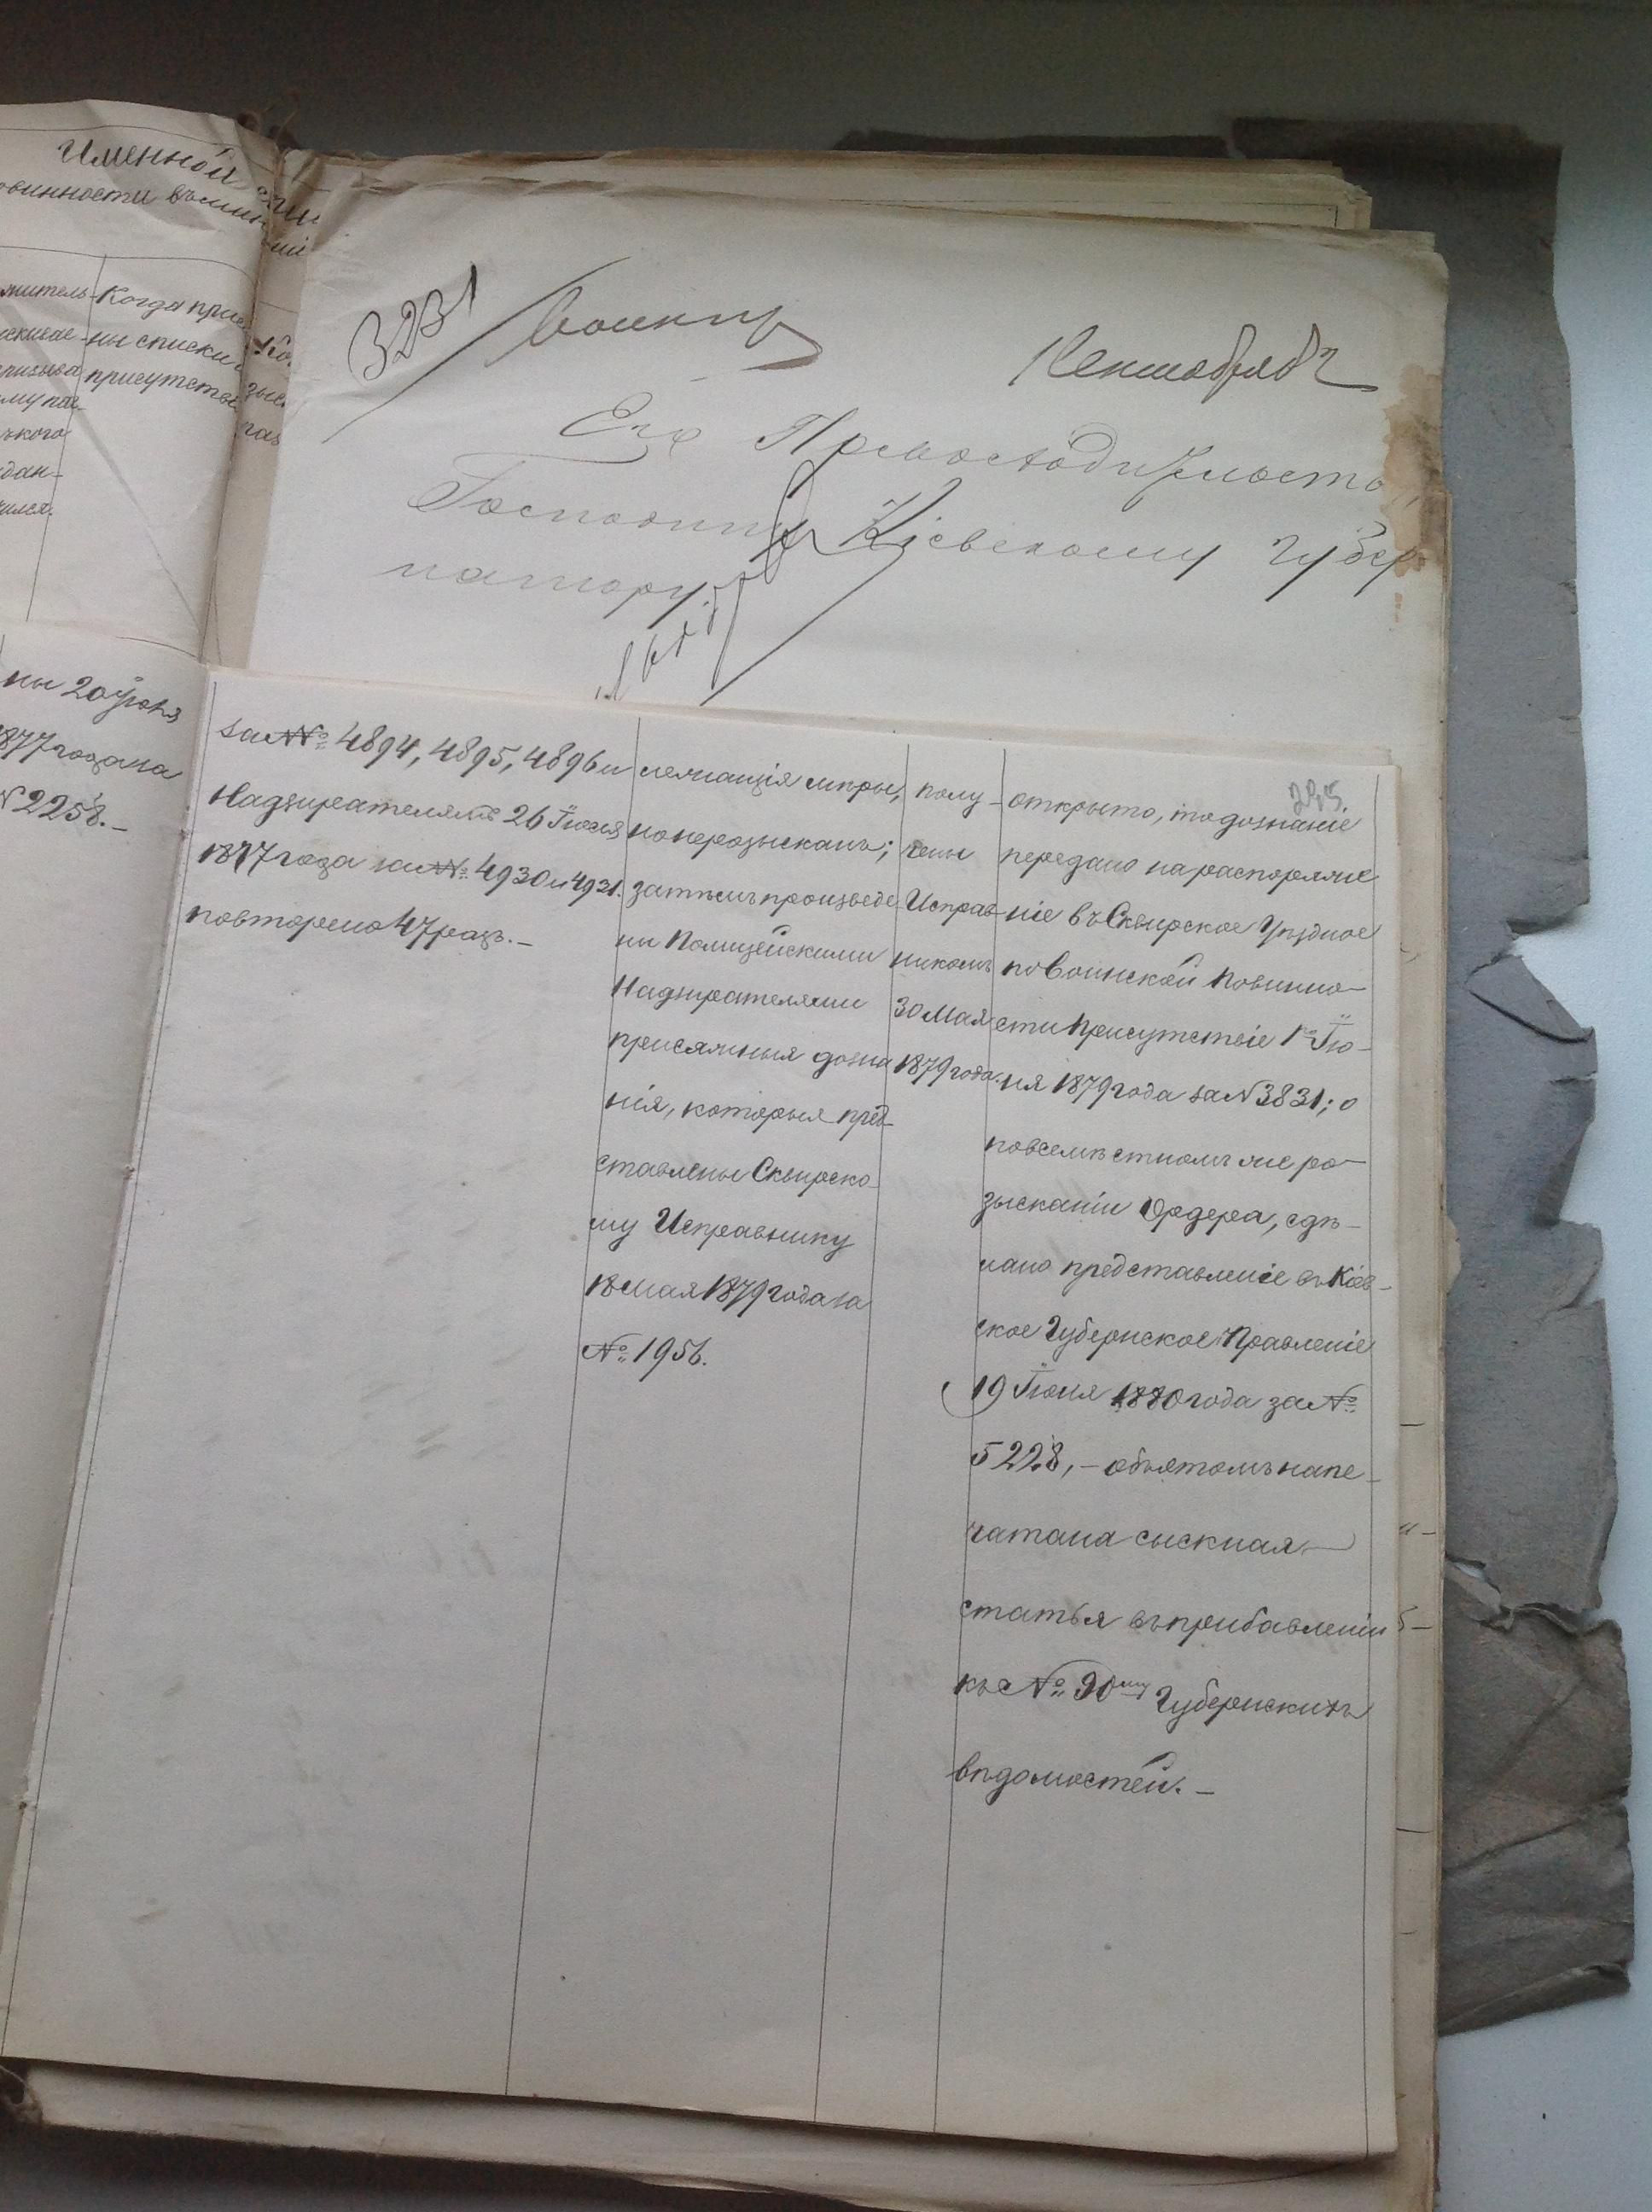 Именной
овинности
житель-
Когда
ны списки
присутств
му пос-
цкого
дан-
3231
Его Превосходительство
Господину Кіевскому Губер
натору.
ны 20 Іюня
1877 года за
№ 2258.-
за №№ 4894, 4895, 4896 и
Надзирателямъ 26 Іюня
1877 года за №№ 4930 и 4931.
повторено 47 разъ.-
лежащія мѣры,
но не розысканъ;
затѣмъ произведе-
ны Полицейскими
Надзирателями
присяжныя дозна
нія, которыя пред-
ставлены Сквирско-
му Исправнику
18 Мая 1879 года за
№ 1956.
полу-
чены
Исправ-
никомъ
30 Мая
1879 года.
295.
открыто, то дознаніе
передано на распоряже
ніе въ Сквирское Уѣздное
по Воинской Повинно-
сти Присутствіе 1го Ію-
ня 1879 года за № 3831; о
повсемѣстномъ же ро-
зысканіи Ордера, сдѣ-
лано представленіе въ Кіев-
ское Губернское Правленіе
19 Іюня 1880 года за №
5228,- объ этомъ напе-
чатана сыскная
статья въ прибавленіи
къ № 90му Губернскихъ
вѣдомостей.-